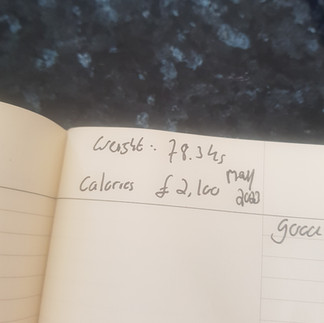 Weight: 78.3kg
Calories £ 2,100 May 2023